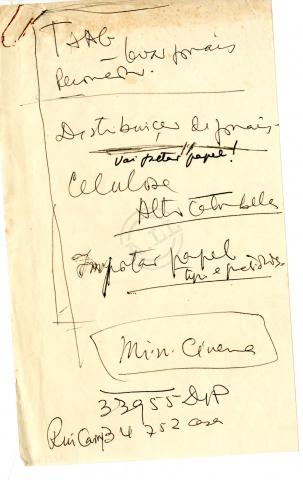 TAAG
– levar jornais
Distribuição de jornais
vai faltar papel!
Celulose
Alto Catumbela
Importar papel
tipo e
Min. Cinema
33955 DIP
Rui 34752 casa